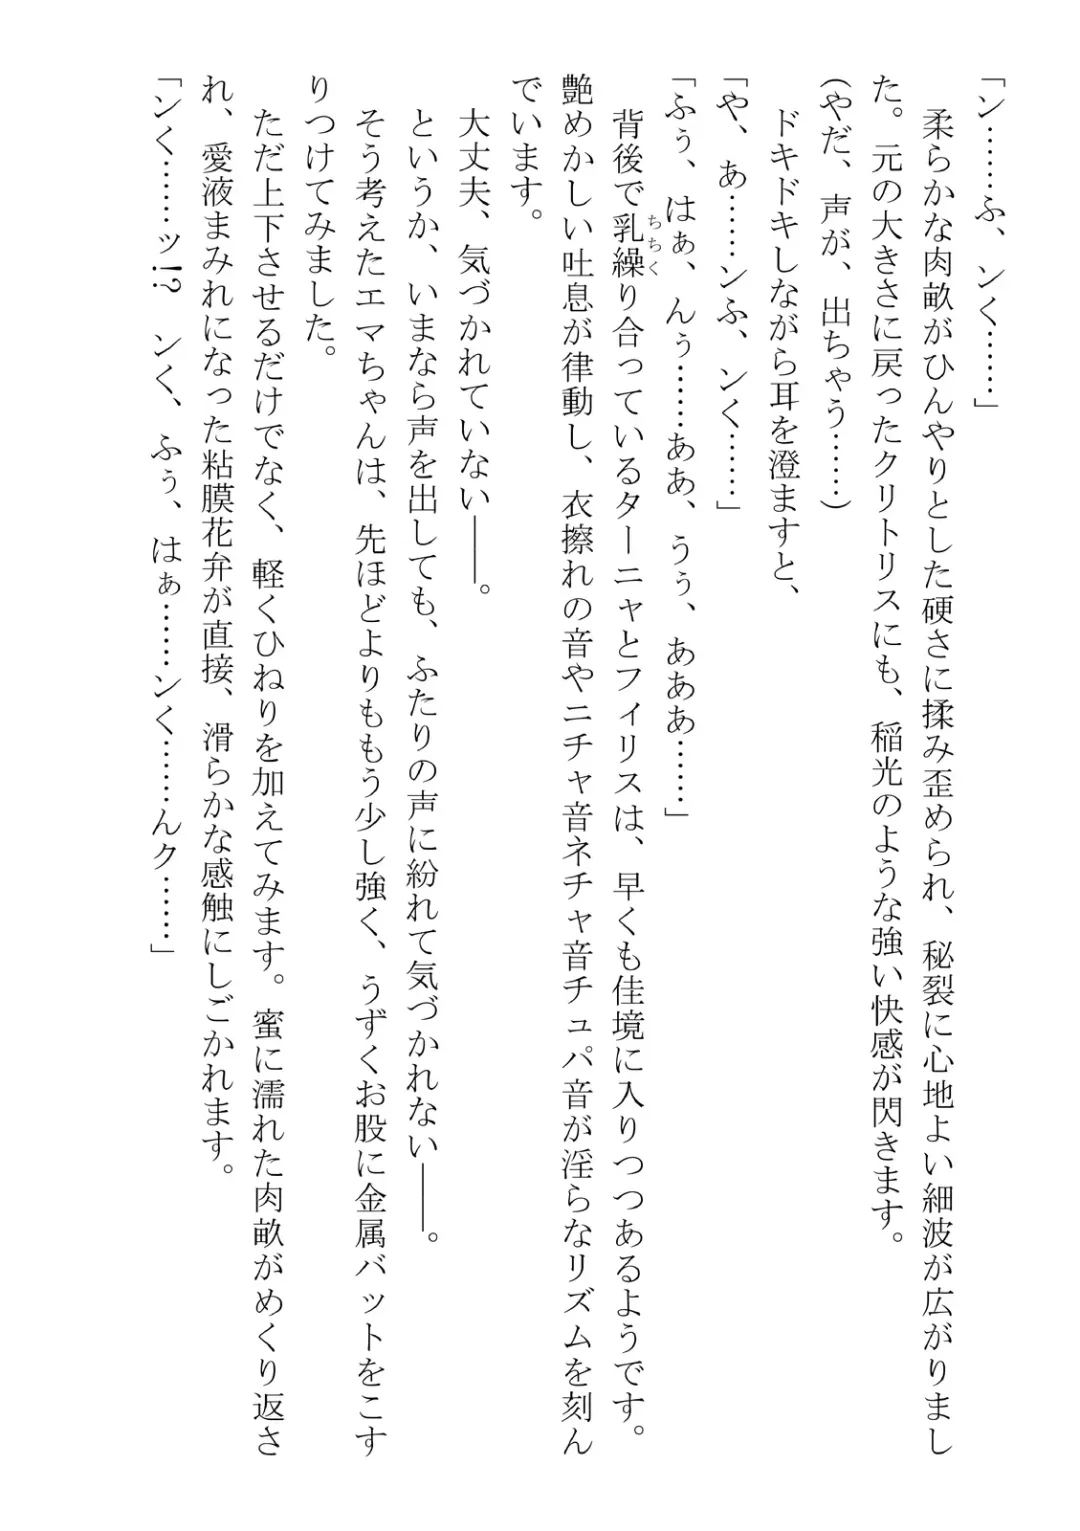 「ン……ふ、ンく……」
柔らかな肉畝がひんやりとした硬さに揉み歪められ、秘裂に心地よい細波が広がりまし
た。元の大きさに戻ったクリトリスにも、稲光のような強い快感が閃きます。
(やだ、声が、出ちゃう……)
ドキドキしながら耳を澄ますと、
「や、あ……ンふ、ンく……」
「ふぅ、はぁ、んぅ……ああ、うぅ、あああ……」
背後で乳繰り合っているターニャとフィリスは、早くも佳境に入りつつあるようです。
ちちく
艶めかしい吐息が律動し、衣擦れの音やニチャ音ネチャ音チュパ音が淫らなリズムを刻ん
でいます。
大丈夫、気づかれていない――。
というか、いまなら声を出しても、ふたりの声に紛れて気づかれない――。
そう考えたエマちゃんは、先ほどよりももう少し強く、うずくお股に金属バットをこす
りつけてみました。
ただ上下させるだけでなく、軽くひねりを加えてみます。蜜に濡れた肉畝がめくり返さ
れ、愛液まみれになった粘膜花弁が直接、滑らかな感触にしごかれます。
「ンく……ッ!?　ンく、ふぅ、はぁ……ンく……んク……」